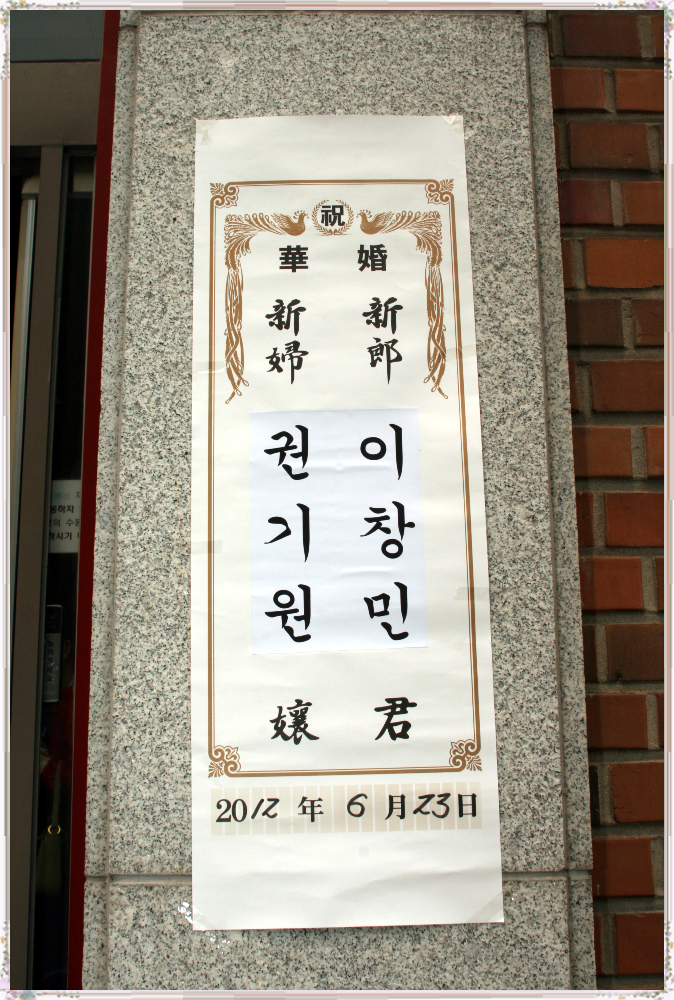 祝
華婚
新郎
이창민
君
新婦
권기원
孃
2012年6月23日